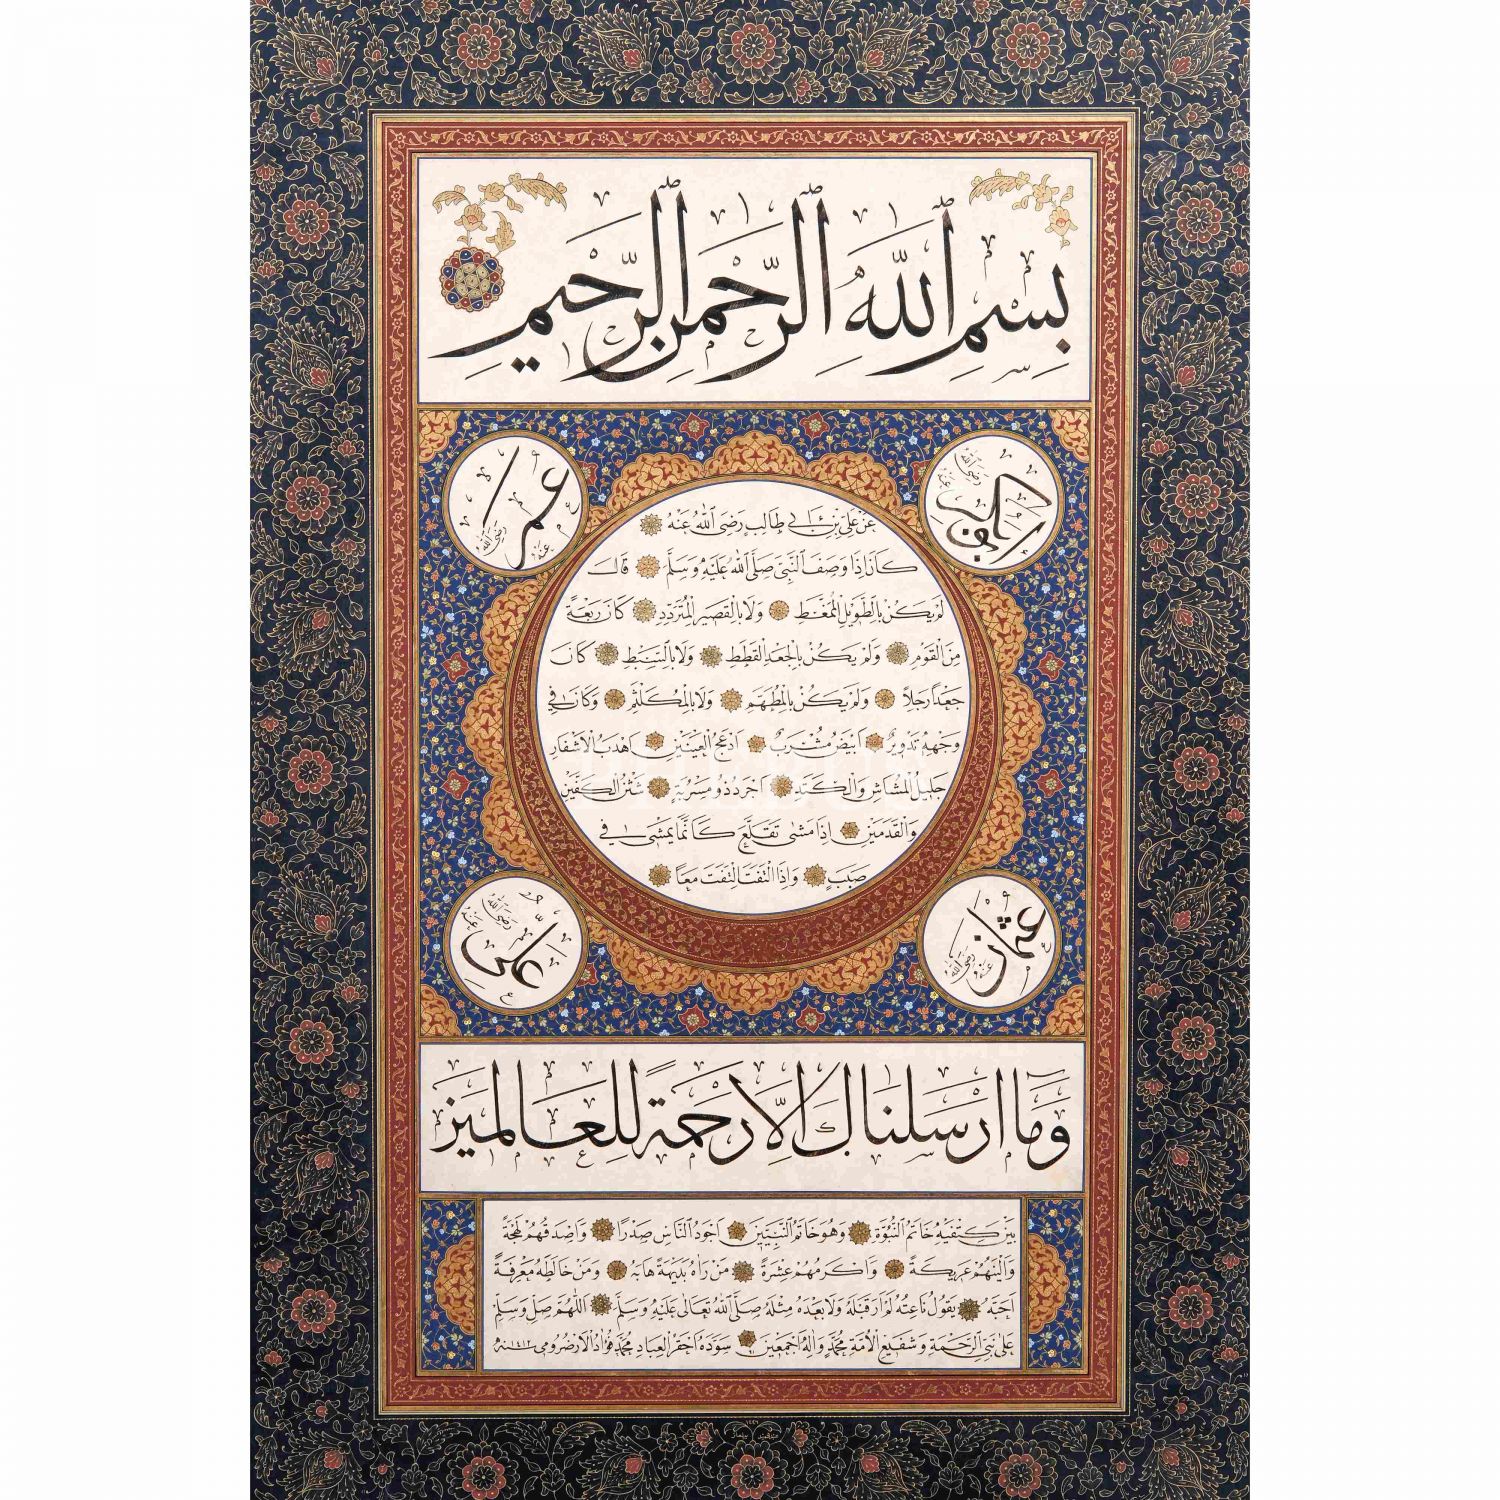 بِسْمِ ٱللَّهِ ٱلرَّحْمٰنِ ٱلرَّحِيمِ
ابوبكر رضى الله عنه
عمر رضى الله عنه
عَنْ عَلِيِّ بْنِ اَبِي طَالِبٍ رَضِيَ اللهُ عَنْهُ
كَانَ اِذَا وَصَفَ النَّبِيَّ صَلَّى اللهُ عَلَيْهِ وَسَلَّمَ قَالَ
لَمْ يَكُنْ بِالطَّوِيلِ الْمُمَّغِطِ وَلَا بِالْقَصِيرِ الْمُتَرَدِّدِ كَانَ رَبْعَةً
مِنَ الْقَوْمِ وَلَمْ يَكُنْ بِالْجَعْدِ الْقَطَطِ وَلَا بِالسَّبِطِ كَانَ
جَعْدًا رَجِلًا وَلَمْ يَكُنْ بِالْمُطَهَّمِ وَلَا بِالْمُكَلْثَمِ وَكَانَ فِي
وَجْهِهِ تَدْوِيرٌ اَبْيَضُ مُشْرَبٌ اَدْعَجُ الْعَيْنَيْنِ اَهْدَبُ الْاَشْفَارِ
جَلِيلُ الْمُشَاشِ وَالْكَتَدِ اَجْرَدُ ذُو مَسْرُبَةٍ شَثْنُ الْكَفَّيْنِ
وَالْقَدَمَيْنِ اِذَا مَشَى تَقَلَّعَ كَاَنَّمَا يَمْشِي فِي
صَبَبٍ وَاِذَا الْتَفَتَ الْتَفَتَ مَعًا
عثمان رضى الله عنه
على رضى الله عنه
وَمَا اَرْسَلْنَاكَ اِلَّا رَحْمَةً لِلْعَالَمِينَ
بَيْنَ كَتِفَيْهِ خَاتَمُ النُّبُوَّةِ وَهُوَ خَاتَمُ النَّبِيِّينَ اَجْوَدُ النَّاسِ صَدْرًا وَاَصْدَقُهُمْ لَهْجَةً
وَاَلْيَنُهُمْ عَرِيكَةً وَاَكْرَمُهُمْ عِشْرَةً مَنْ رَاٰهُ بَدِيهَةً هَابَهُ وَمَنْ خَالَطَهُ مَعْرِفَةً
اَحَبَّهُ يَقُولُ نَاعِتُهُ لَمْ اَرَ قَبْلَهُ وَلَا بَعْدَهُ مِثْلَهُ صَلَّى اللهُ تَعَالٰى عَلَيْهِ وَسَلَّمَ اَللّٰهُمَّ صَلِّ وَسَلِّمْ
عَلٰى نَبِيِّ الرَّحْمَةِ وَشَفِيعِ الْاُمَّةِ مُحَمَّدٍ وَاٰلِهِ اَجْمَعِينَ سَوَّدَهُ اَحْقَرُ الْعِبَادِ مُحَمَّد فُؤَاد الْاَرْضَرُومِي ١٤١٢ سنه